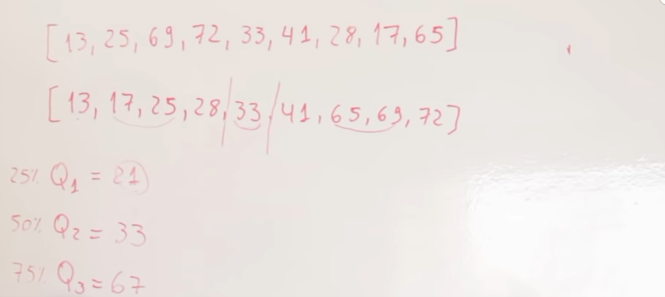 [13, 25, 69, 72, 33, 41, 28, 17, 65]
[13, 17, 25, 28, 33, 41, 65, 69, 72]
25% Q1 = 21
50% Q2 = 33
75% Q3 = 67